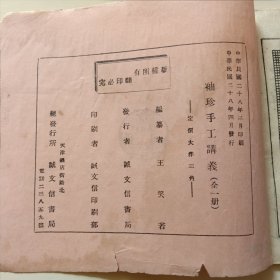 中華民國二十八年三月印刷
中華民國二十八年四月發行
袖珍手工講義(全一冊)
定價大洋二角
編纂者 王笑著
發行者 誠文信書局
印刷者 誠文信印刷部
總發行所 誠文信書局
天津鍋店街路北
電話二三八五九號
版權所有
翻印必究